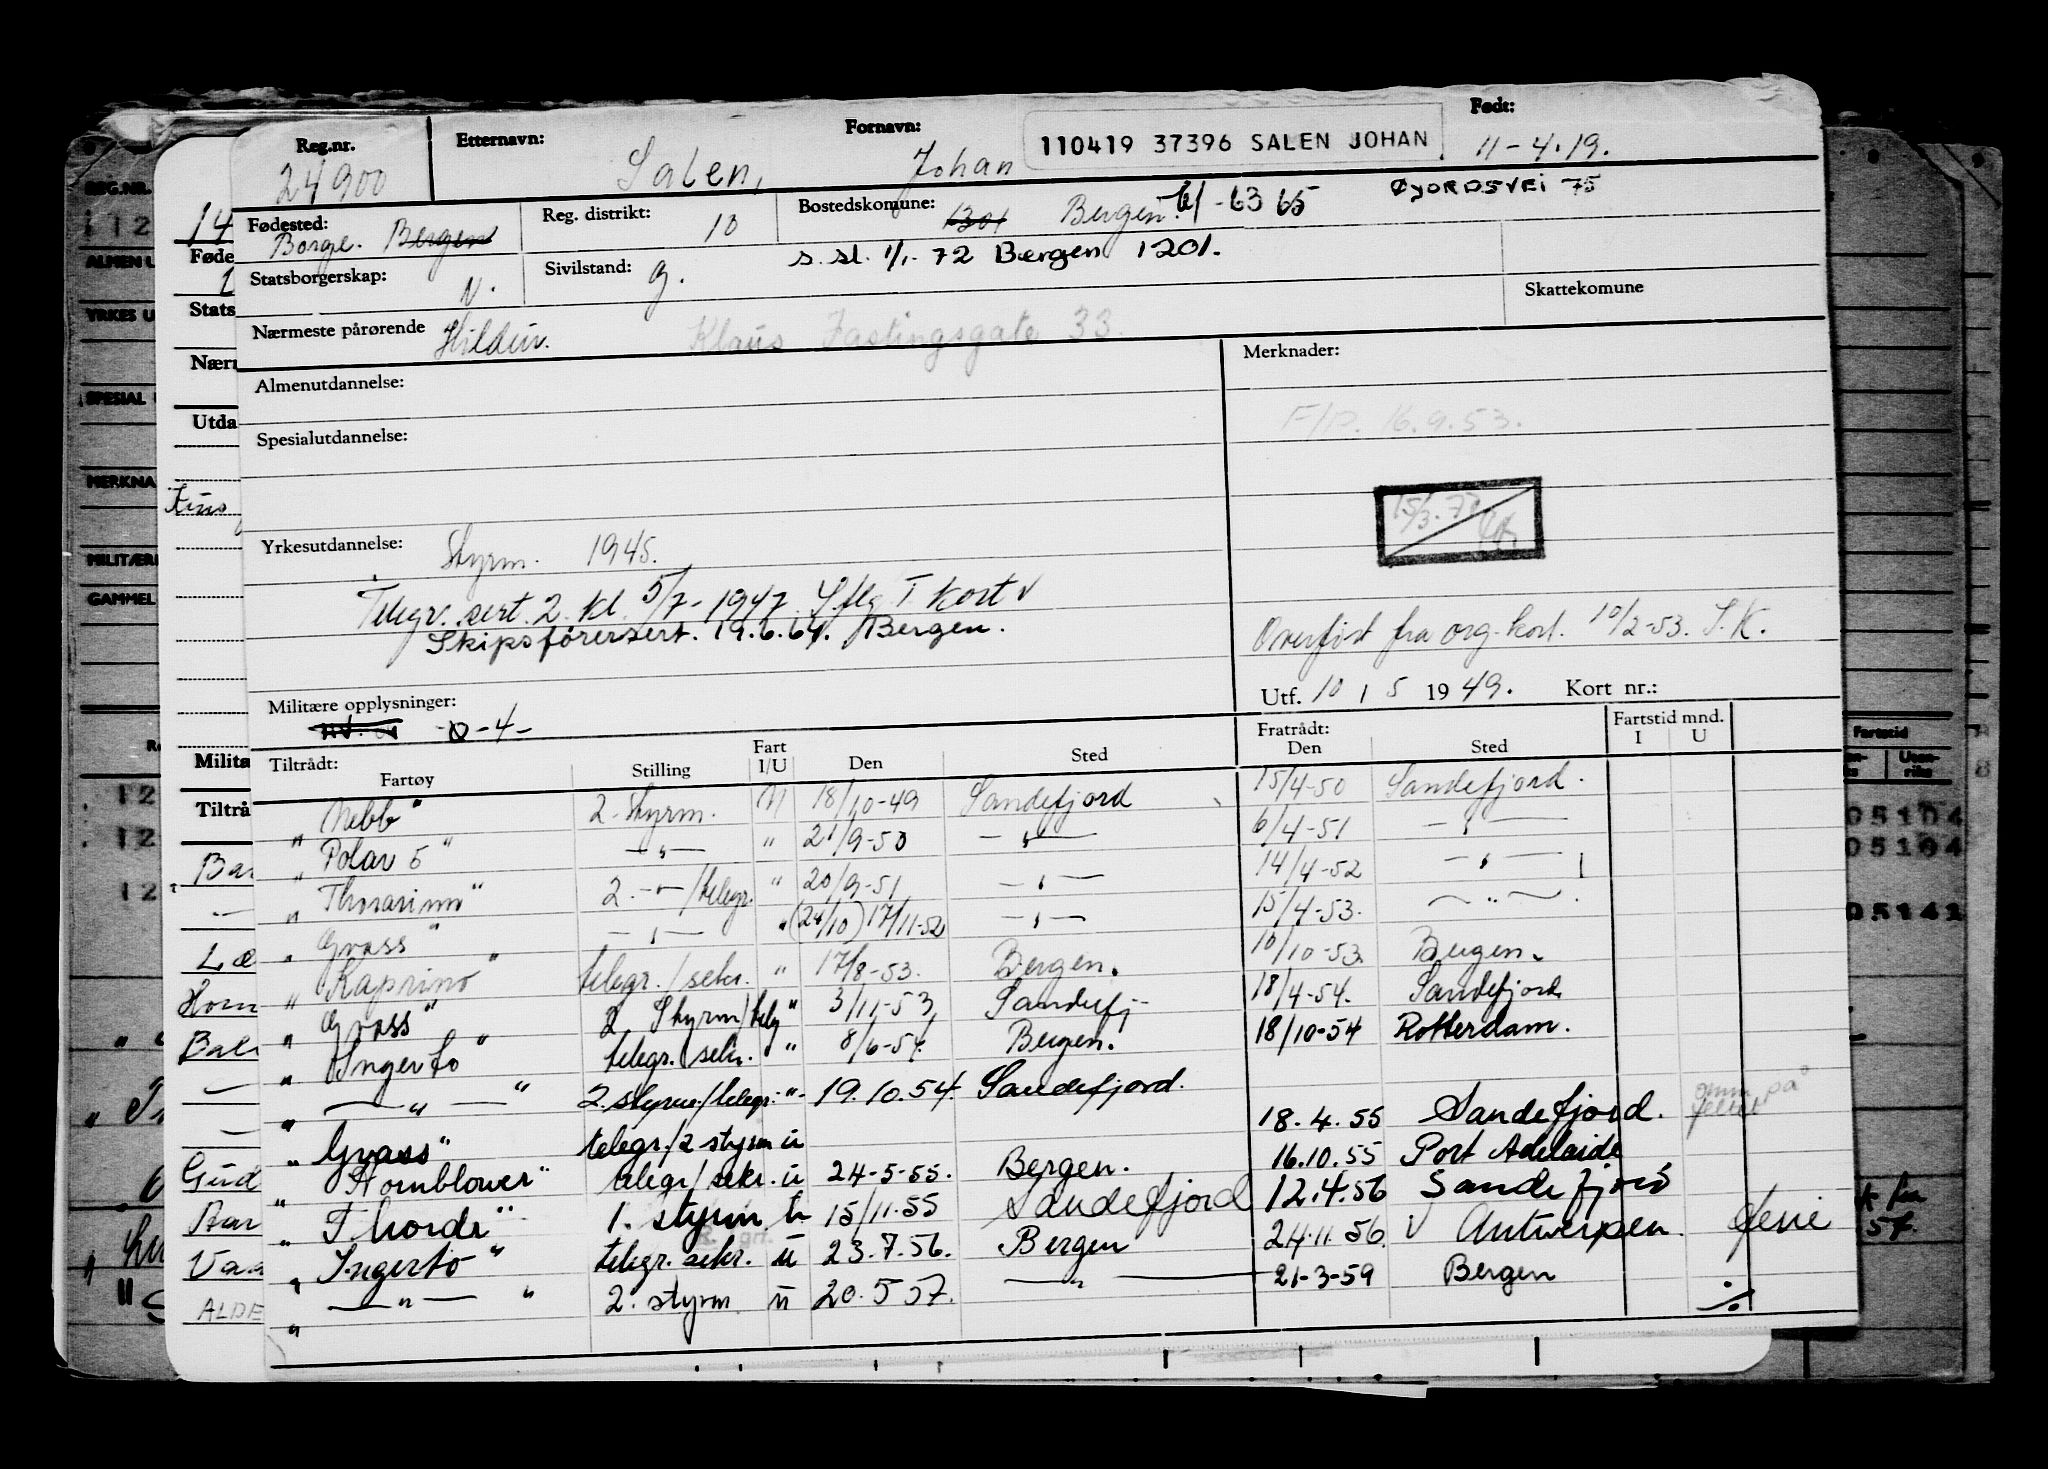 Reg.nr. 24900
Etternavn: Salen,
Fornavn: Johan
110419 37396 SALEN JOHAN
Født: 11-4.19.
Fødested: Borge. Bergen
Reg. distrikt: 10
Bostedskomune: 1301 Bergen. 61-63 65 ØYJORDSVEI 75
s. sl. 1/1-72 Bergen 1201.
Statsborgerskap: N.
Sivilstand: g.
Skattekomune
Nærmeste pårørende Hildur. Klaus Fastingsgate 33.
Almenutdannelse:
Merknader:
F/P. 16.9.53.
Spesialutdannelse:
15/3.77
Yrkesutdannelse: Styrm. 1945.
Telegr. sert. 2. kl. 5/7-1947. S.flg I kort
Skipsførersert. 19.6.64. Bergen.
Overført fra org. kort. 10/2-53. S.K.
Utf. 10 / 5 1949. Kort nr.:
Militære opplysninger:
-0-4-
Tiltrådt: Fartøy Stilling Fart I/U Den Sted Fratrådt: Den Sted Fartstid mnd. I U
" Nebb" 2. styrm. U 18/10-49 Sandefjord 15/4-50 Sandefjord.
" Polar 5" —"— " 21/9-50 —"— 6/4-51 —"—
" Thorarinn" 2. —"—/telegr. " 20/9-51 —"— 14/4-52 —"—
" Grass" —"— " (24/10) 17/11-52 —"— 15/4-53. —"—
" Kaprino" telegr./sekr. " 17/8-53. Bergen. 10/10-53 Bergen.
" Grass" 2 Styrm/telg " 3/11-53, Sandefj- 18/4-54. Sandefjord
" Ingerto" telegr. sekr. " 8/6-54. Bergen. 18/10-54 Rotterdam.
" —"— " 2. styrm./telegr. -"- 19.10.54. Sandefjord.
" Grass" telegr./2 styrm u 18.4.55 Sandefjord.
" Hornblower" telegr/sekr. u 24-5-55. Bergen. 16.10.55 Port Adelaide
" Thorde" 1. styrm u 15/11.55 Sandefjord 12.4.56 Sandefjord
" Ingerto" telegr. sekr. u 23.7.56. Bergen 24.11.56. Antwerpen.
" —"— " 2. styrm u 20.5 57. —"— 21-3-59 Bergen
REG.NR.
112
14
Føde
ALMEN U
Stats
YRKES U
Nærn
SPESIAL
Utda
MERKNA
MILITÆRE
GAMMEL
Milita
Tiltrå
12
12
12
Bar
Læ
Horn
Gud
Vaa
ALDE
Fartstid
05104
05104
05141
57.